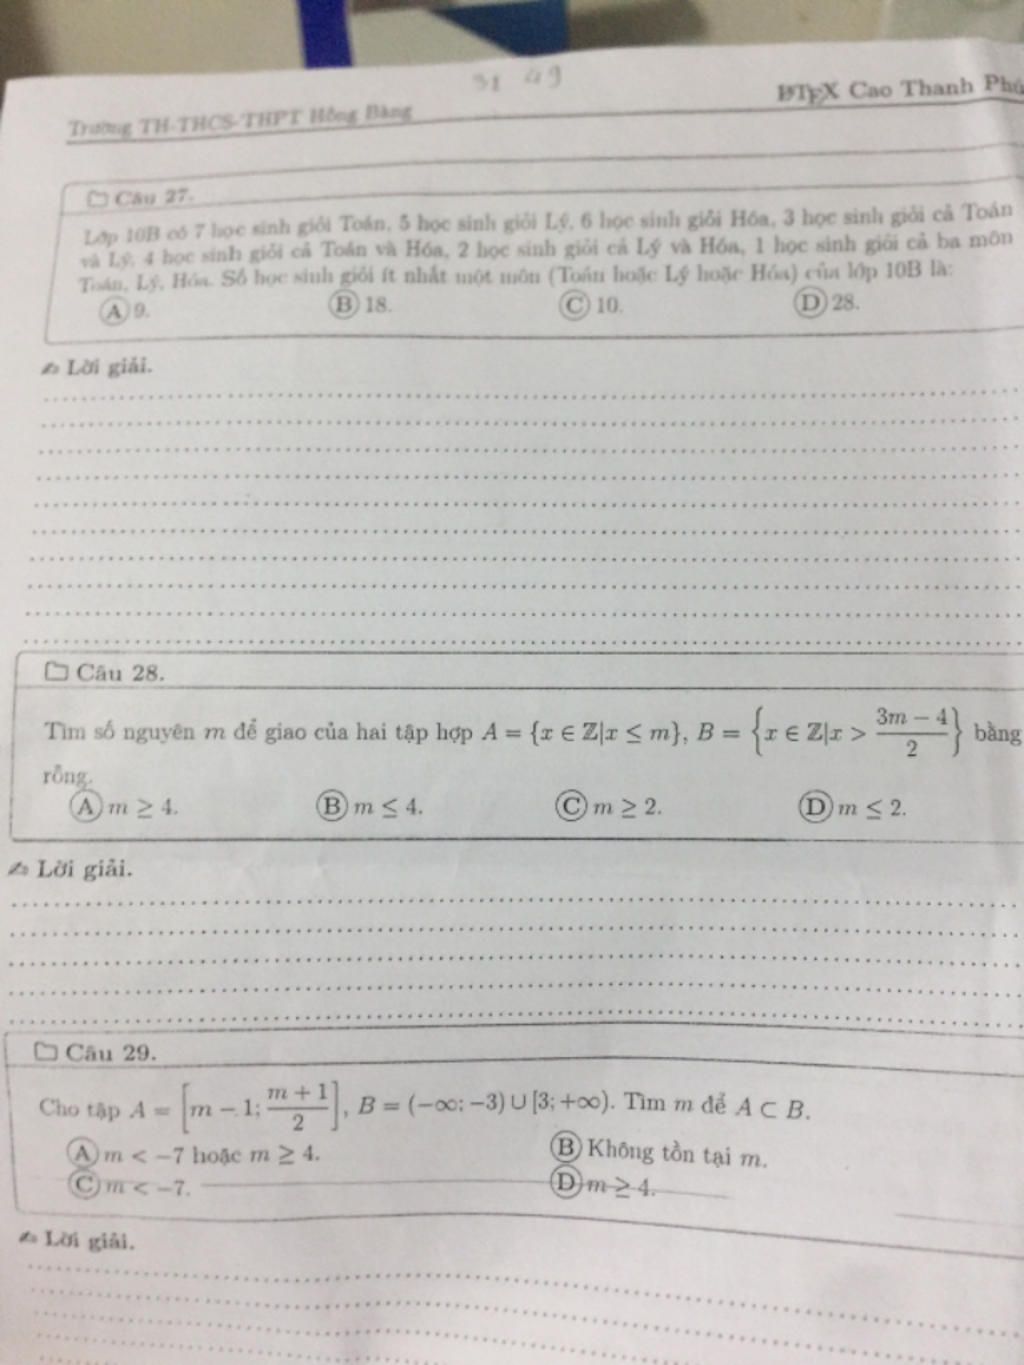 31 49
Trường TH-THCS-THPT Hồng Bàng
LATEX Cao Thanh Phú
Câu 27.
Lớp 10B có 7 học sinh giỏi Toán, 5 học sinh giỏi Lý, 6 học sinh giỏi Hóa, 3 học sinh giỏi cả Toán
và Lý, 4 học sinh giỏi cả Toán và Hóa, 2 học sinh giỏi cả Lý và Hóa, 1 học sinh giỏi cả ba môn
Toán, Lý, Hóa. Số học sinh giỏi ít nhất một môn (Toán hoặc Lý hoặc Hóa) của lớp 10B là:
A 9. B 18. C 10. D 28.
Lời giải.
Câu 28.
Tìm số nguyên m để giao của hai tập hợp A = {x ∈ ℤ|x ≤ m}, B = {x ∈ ℤ|x > (3m − 4)/2} bằng
rỗng.
A m ≥ 4. B m ≤ 4. C m ≥ 2. D m ≤ 2.
Lời giải.
Câu 29.
Cho tập A = [m − 1; (m + 1)/2], B = (−∞; −3) ∪ [3; +∞). Tìm m để A ⊂ B.
A m < −7 hoặc m ≥ 4. B Không tồn tại m.
C m < −7. D m ≥ 4.
Lời giải.